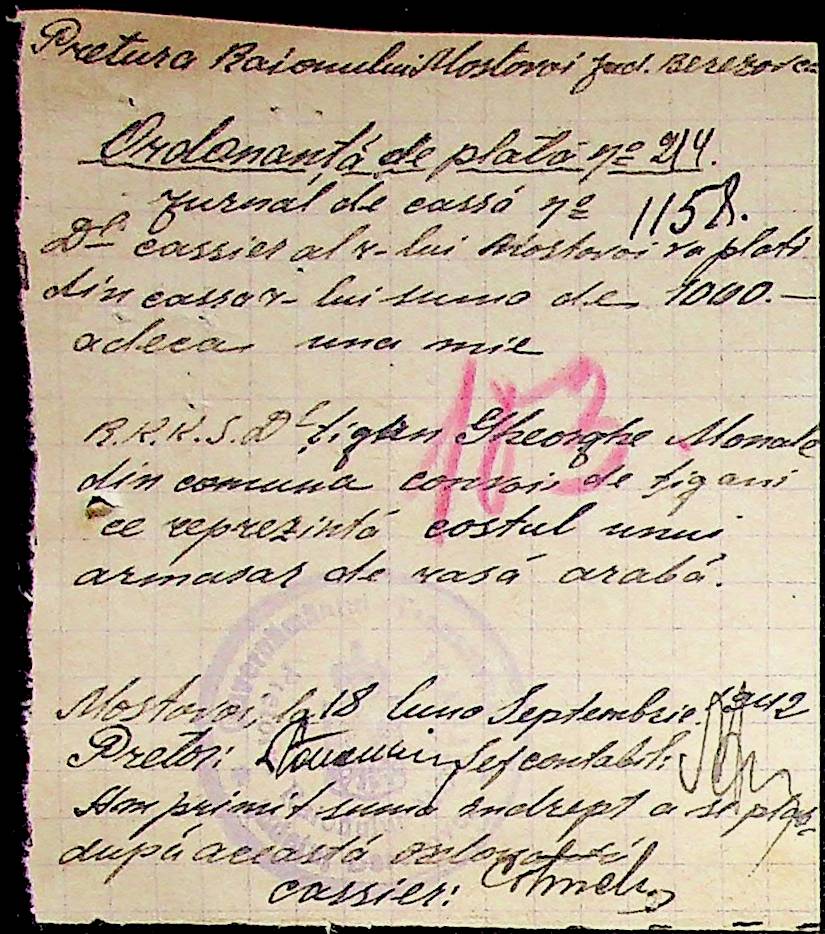 Pretura Raionului Mostovoi jud. Berezovca
Ordonanță de plată No 214.
Jurnal de cassă No 1158.
Dl cassier al r-lui Mostovoi va plăti
din cassa r-lui suma de 1000.—
adeca una mie
103.
R.K.K.S. Dl țigan Gheorghe
din comuna convoi de țigani
ce reprezintă costul unui
armasar de rasă arabă.
Mostovoi, la 18 luna Septembrie 1942
Pretor: Șef contabil:
Am primit suma
după această ordonanță
cassier: